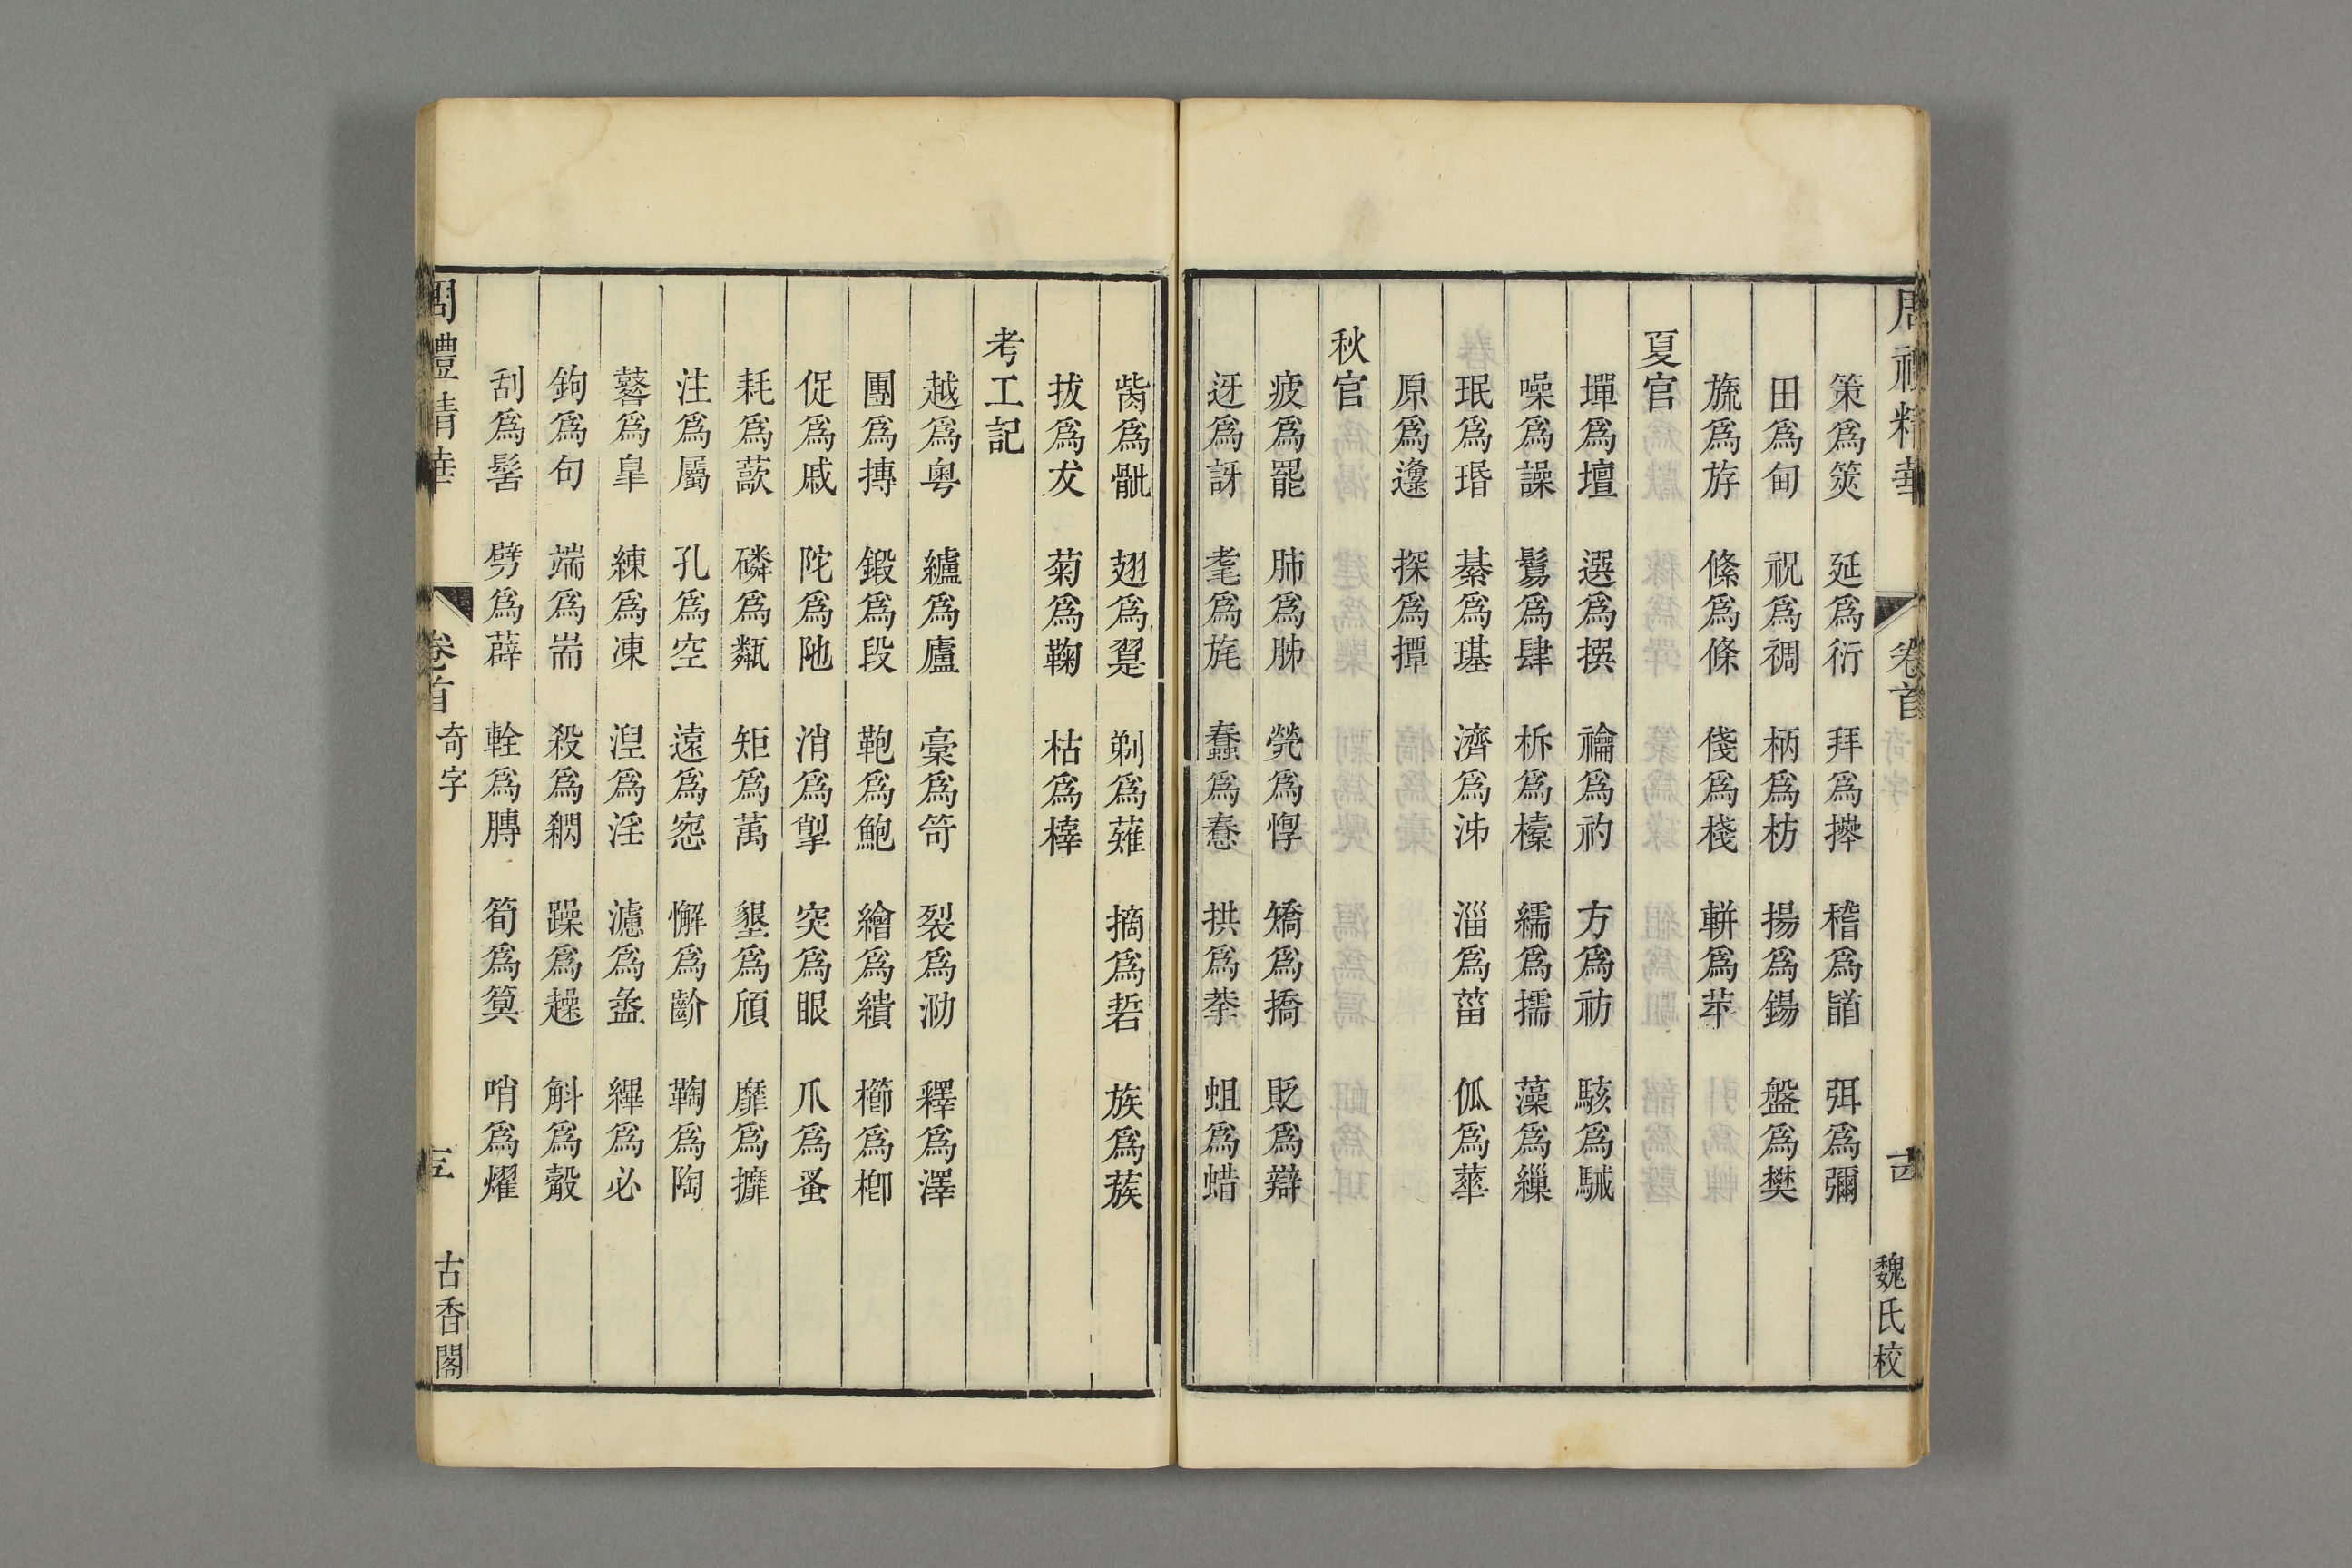 周禮精華 卷首 魏氏校
策爲筴 延爲衍 拜爲𢷎 稽爲䭫 弭爲彌
田爲甸 祝爲禂 柄爲枋 揚爲鍚 盤爲樊
旒爲斿 絛爲條 俴爲棧 軿爲苹
夏官
墠爲壇 選爲撰 禴爲礿 方爲祊 駭爲駴
噪爲譟 鬄爲肆 柝爲㯓 繻爲擩 藻爲繅
珉爲瑉 綦爲璂 濟爲泲 淄爲菑 㼌爲蓏
原爲邍 探爲撢
秋官
疲爲罷 肺爲胏 煢爲惸 矯爲撟 貶爲辯
迓爲訝 耄爲旄 蠢爲憃 拱爲拲 蛆爲蜡
胔爲骴 翅爲翨 剃爲薙 摘爲硩 族爲蔟
拔爲犮 菊爲鞠 枯爲榟
考工記
越爲粵 纑爲廬 槀爲笴 裂爲泐 釋爲澤
團爲摶 鍛爲段 鞄爲鮑 繪爲繢 櫛爲楖
促爲戚 陀爲阤 消爲掣 突爲眼 爪爲蚤
耗爲藃 磷爲甐 矩爲萬 墾爲頎 靡爲擵
注爲屬 孔爲空 遠爲窓 懈爲齘 鞠爲陶
鼛爲臯 練爲湅 湼爲淫 濾爲盝 縪爲必
鉤爲句 端爲耑 殺爲䊛 躁爲趮 斛爲觳
刮爲髺 劈爲薜 輇爲膞 筍爲簨 哨爲燿
周禮精華 卷首 奇字 古香閣